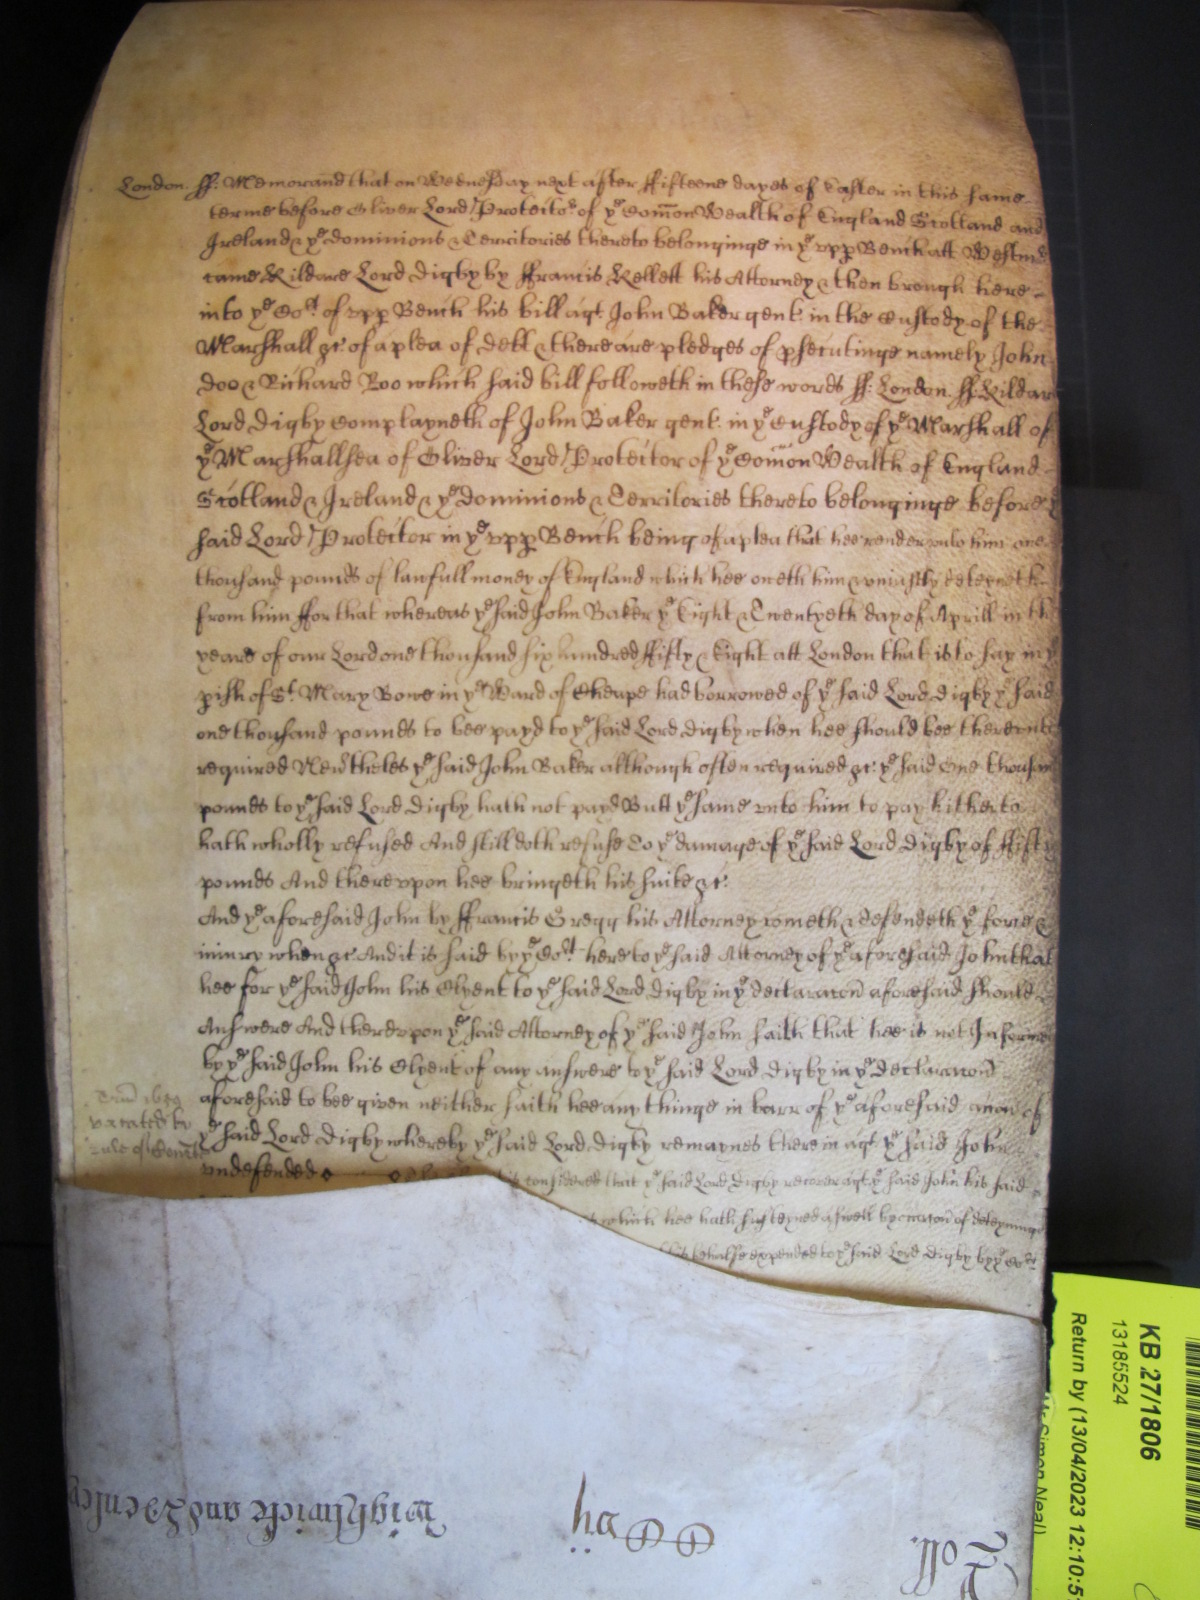 London. ff: Memorand that on Wednesday next after ffifteene dayes of Easter in this same
terme before Oliver Lord Protectoʳ of yᵉ Com̄on Wealth of England Scotland and
Ireland & yᵉ dominions & Territories thereto belonginge in yᵉ vpp Bench att Westm
came Kildare Lord Digby by ffrancis Kellett his Attorney & then brough here
into yᵉ Coʳᵗ of vpp Bench his bill agt John Baker gent. in the Custody of the
Marshall &c: of a plea of debt & there are pledges of psecutinge namely John
Doo & Richard Roo which said bill followeth in these words ff: London. ff. Kildare
Lord Digby Complayneth of John Baker gent. in yᵉ Custody of yᵉ Marshall of
yᵉ Marshallsea of Oliver Lord Protector of yᵉ Com̄on Wealth of England
Scotland & Ireland & yᵉ Dominions & Territories thereto belonginge before
said Lord Protector in yᵉ vpp Bench being of a plea that hee render vnto him one
thousand pounds of lawfull money of England which hee oweth him & vniustly deteyneth
from him ffor that whereas yᵉ said John Baker yᵉ Eight & Twentyeth day of Aprill in th
yeare of our Lord one thousand six hundred ffifty & Eight att London that is to say in yᵉ
pish of Sᵗ. Mary Bowe in yᵉ Ward of Cheape had borrowed of yᵉ said Lord Digby yᵉ said
one thousand pounds to bee payd to yᵉ said Lord Digby when hee should bee therevnto
required Neṽtheles yᵉ said John Baker although often required &c: yᵉ said One thousan
pounds to yᵉ said Lord Digby hath not payd Butt yᵉ same vnto him to pay hitherto
hath wholly refused And still doth refuse To yᵉ damage of yᵉ said Lord Digby of ffifty
pounds And therevpon hee bringeth his suite &c:
And yᵉ aforesaid John by ffrancis Gregg his Attorney cometh & defendeth yᵉ force &
iniury when &c And it is said by yᵉ Coʳᵗ here to yᵉ said Attorney of yᵉ aforesaid John that
hee for yᵉ said John his Clyent to yᵉ said Lord Digby in yᵉ declaracoñ aforesaid should
Answere And therevpon yᵉ said Attorney of yᵉ said John saith that hee is not Informe
by yᵉ said John his Clyent of any answere to yᵉ said Lord Digby in yᵉ declaracoñ
aforesaid to bee given neither saith hee any thinge in barr of yᵉ aforesaid accoñ of
yᵉ said Lord Digby whereby yᵉ said Lord Digby remaynes therein agt yᵉ said John
vndefended
vacated by
rule of Court
considered that yᵉ said Lord Digby recover agt yᵉ said John his said
which hee hath susteyned aswell by occacoñ of deteyninge
his behalfe expended to yᵉ said Lord Digby by yᵉ Coʳᵗ
Wightwicke and Henley
Roll
KB 27/1806
13185524
Return by (13/04/2023 12:10:5
Mr Simon Neal)